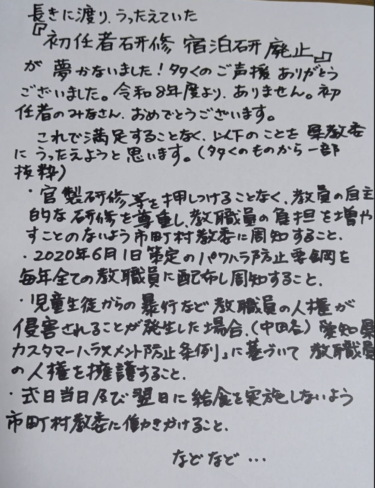 長きに渡り、うったえていた
『初任者研修 宿泊研 廃止』
が 夢かないました！タタくのご声援 ありがとう
ございました。令和8年度より、ありません。初
任者のみなさん、おめでとうございます。
これで満足することなく、以下のことを 県教委
にうったえようと思います。(タタくのものから一部
抜粋)
・官製研修等を押しつけることなく、教員の自主
的な研修を尊重し、教職員の負担を増や
すことのないよう市町村教委に周知すること。
・2020年6月1日策定のパワハラ防止要綱を
毎年全ての教職員に配布し周知すること。
・児童生徒からの暴行など教職員の人権が
侵害されることが発生した場合、(中田名)愛知県
カスタマーハラスメント防止条例」に基づいて 教職員
の人権を擁護すること。
・式日当日及び翌日に給食を実施しないよう
市町村教委に働きかけること。
などなど…